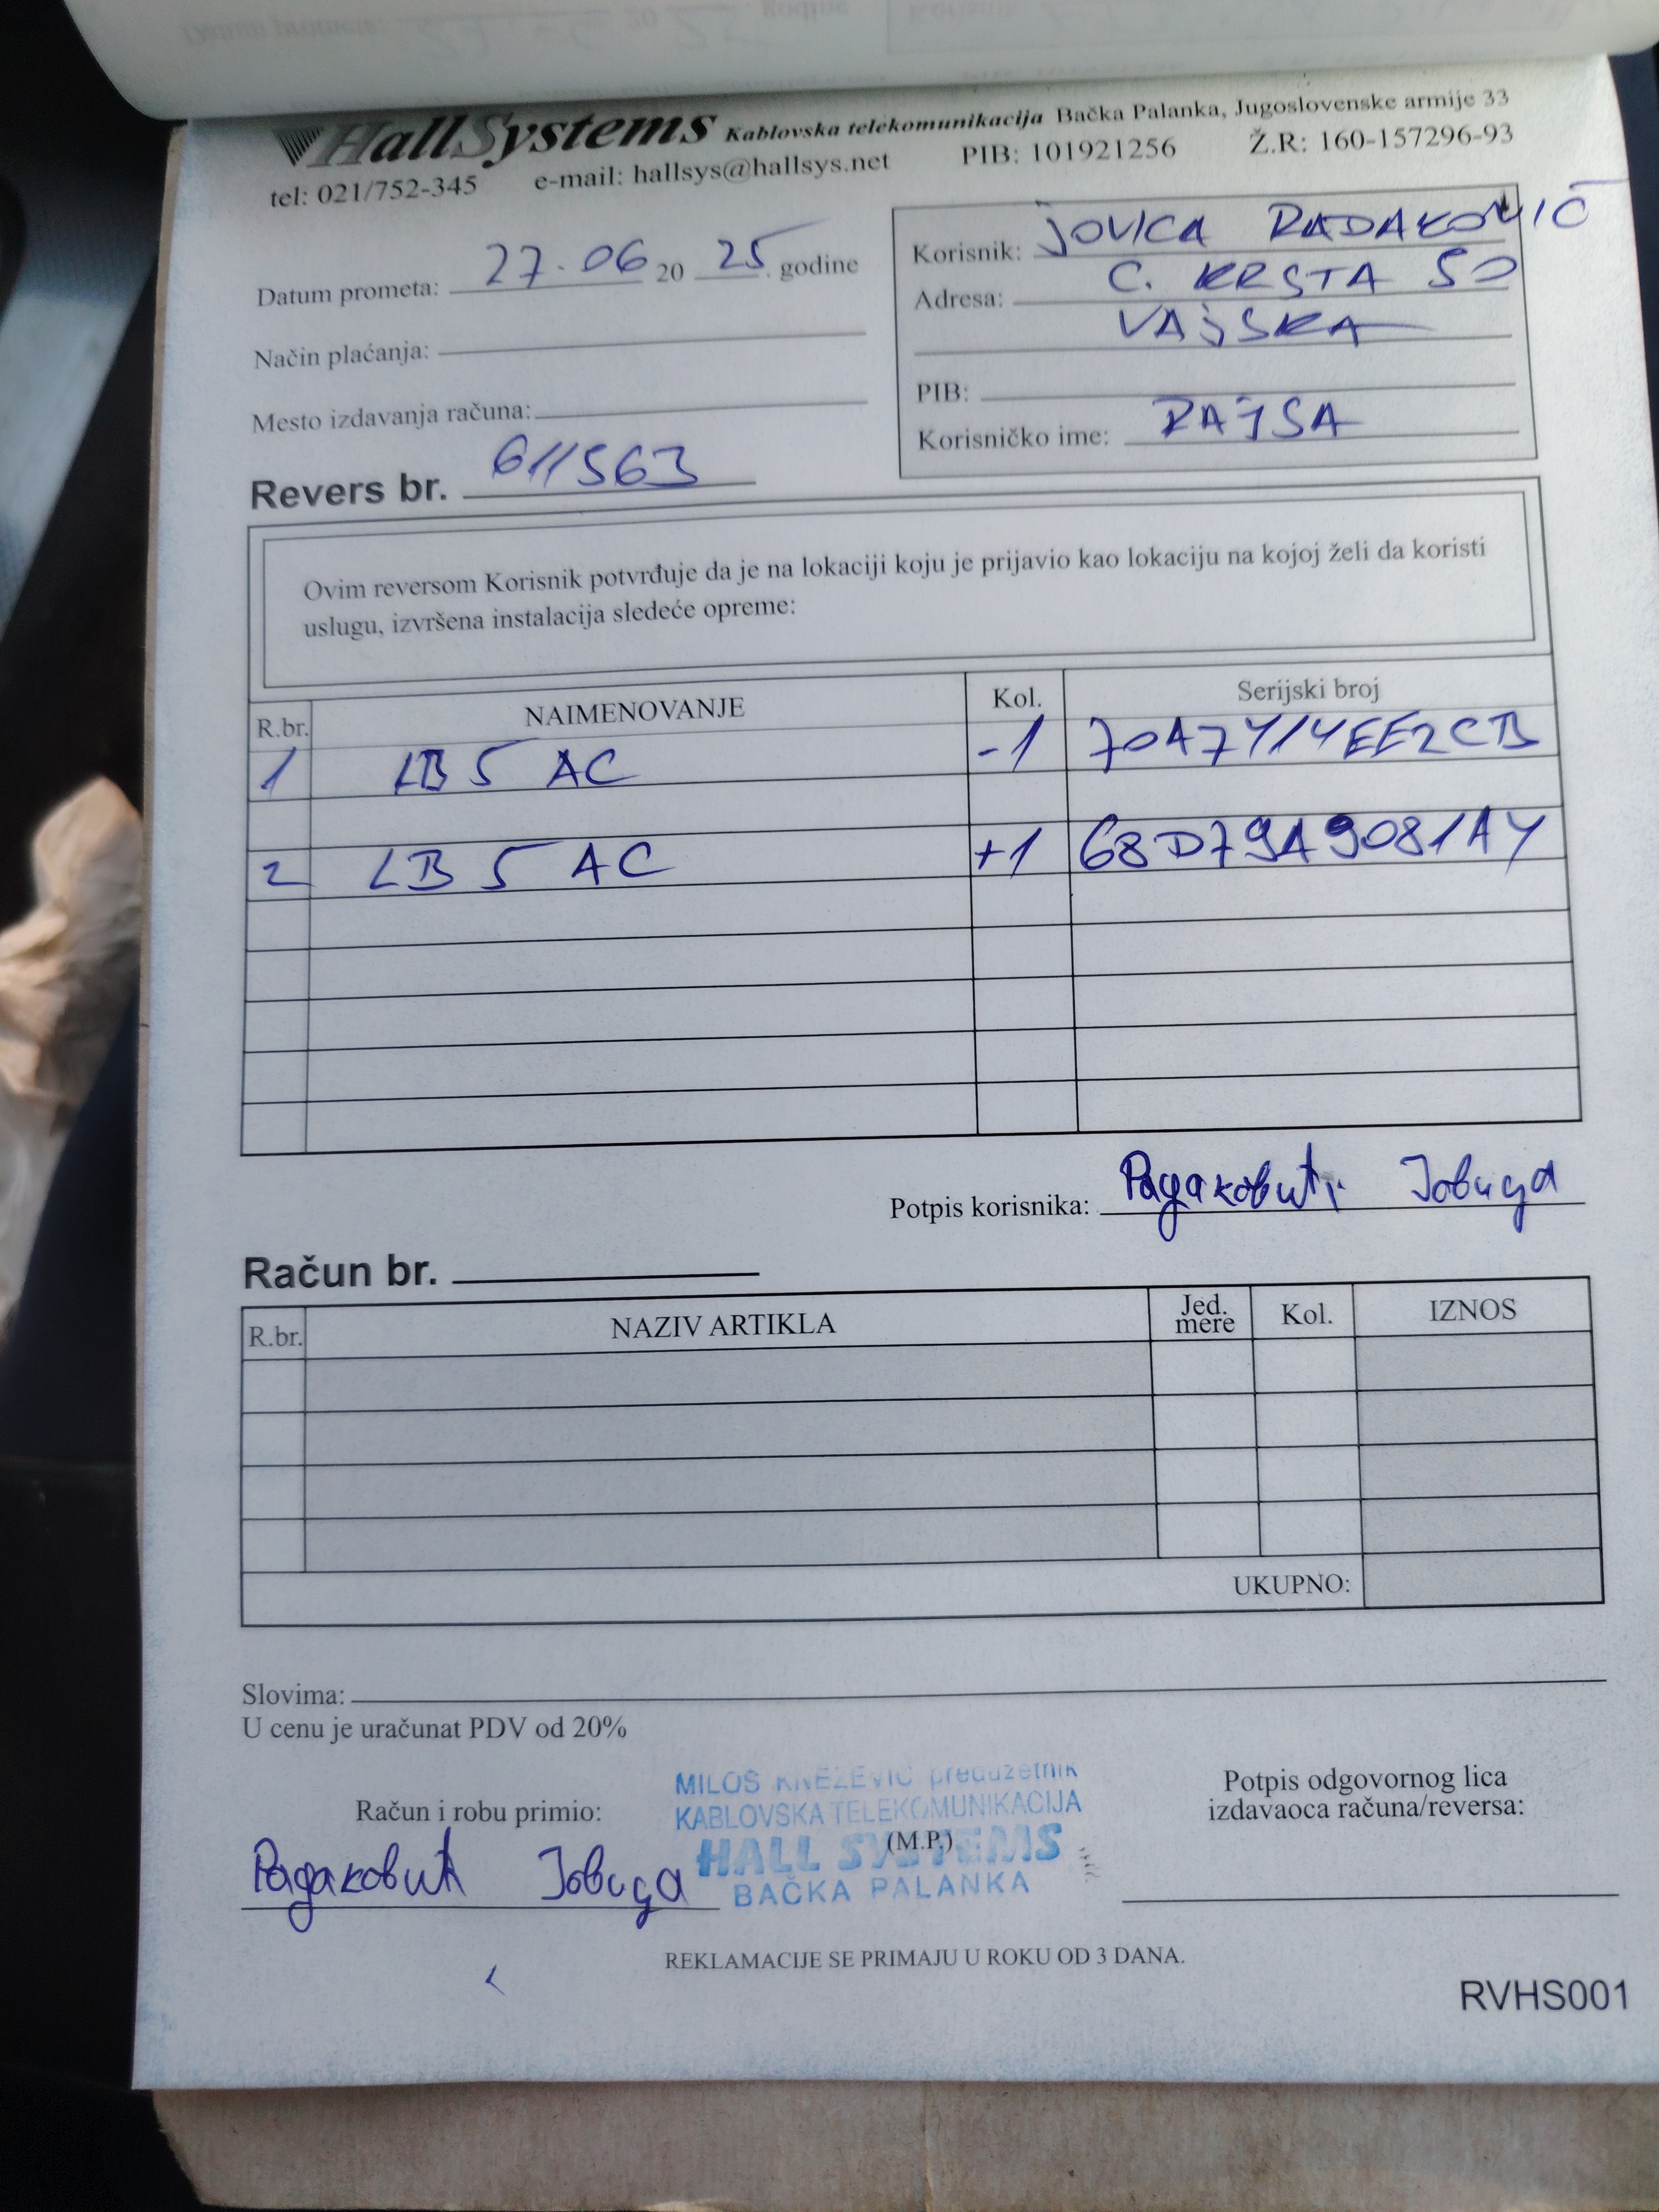 HallSystems Kablovska telekomunikacija Bačka Palanka, Jugoslovenske armije 33
tel: 021/752-345 e-mail: hallsys@hallsys.net PIB: 101921256 Ž.R: 160-157296-93
Datum prometa: 27.06 20 25. godine
Način plaćanja:
Mesto izdavanja računa:
Revers br. 611563
Korisnik: JOVICA RADAKOVIĆ
Adresa: C. KRSTA 50
VAJSKA
PIB:
Korisničko ime: RAJSA
Ovim reversom Korisnik potvrđuje da je na lokaciji koju je prijavio kao lokaciju na kojoj želi da koristi
uslugu, izvršena instalacija sledeće opreme:
R.br. NAIMENOVANJE Kol. Serijski broj
1 LB 5 AC -1 70A7414EE2CB
2 LB 5 AC +1 68D79A9081A4
Potpis korisnika: Радаковић Јовица
Račun br.
R.br. NAZIV ARTIKLA Jed. mere Kol. IZNOS
UKUPNO:
Slovima:
U cenu je uračunat PDV od 20%
Račun i robu primio:
Радаковић Јовица
MILOŠ KNEŽEVIĆ preduzetnik
KABLOVSKA TELEKOMUNIKACIJA
(M.P.)
HALL SYSTEMS
BAČKA PALANKA
Potpis odgovornog lica
izdavaoca računa/reversa:
REKLAMACIJE SE PRIMAJU U ROKU OD 3 DANA.
RVHS001